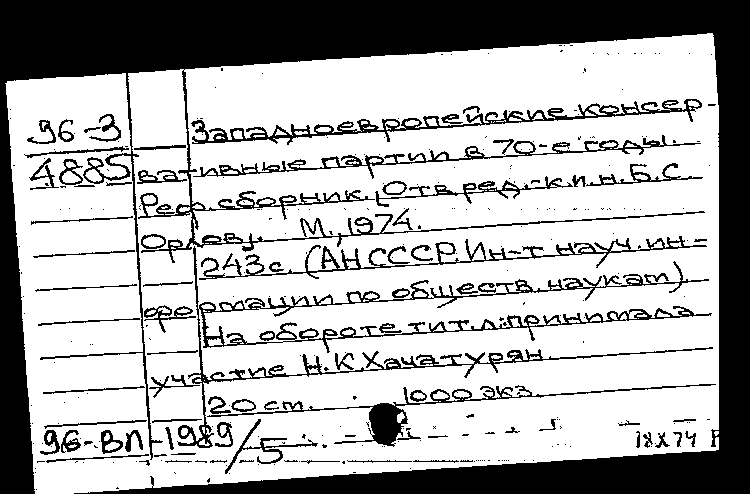 96-3 Западноевропейские консер-
4885 вативные партии в 70-е годы.
Реф. сборник. [Отв. ред.-к.и.н. Б.С.
Орлов]. М., 1974.
243 с. (АН СССР. Ин-т науч. ин=
формации по обществ. наукам)
На обороте тит. л.: принимала
участие Н.К. Хачатурян.
20 cm. 1000 экз.
96-ВП-1989/5
18 X 74